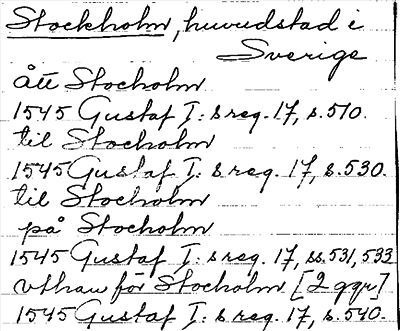 Stockholm, huvudstad i
Sverige
ått Stocholm
1545 Gustaf I:s reg. 17, s. 510.
til Stocholm
1545 Gustaf I:s reg. 17, s. 530.
til Stocholm
på Stocholm
1545 Gustaf I:s reg. 17, ss. 531, 533
vthan för Stocholm [2 ggr]
1545 Gustaf I:s reg. 17, s. 540.